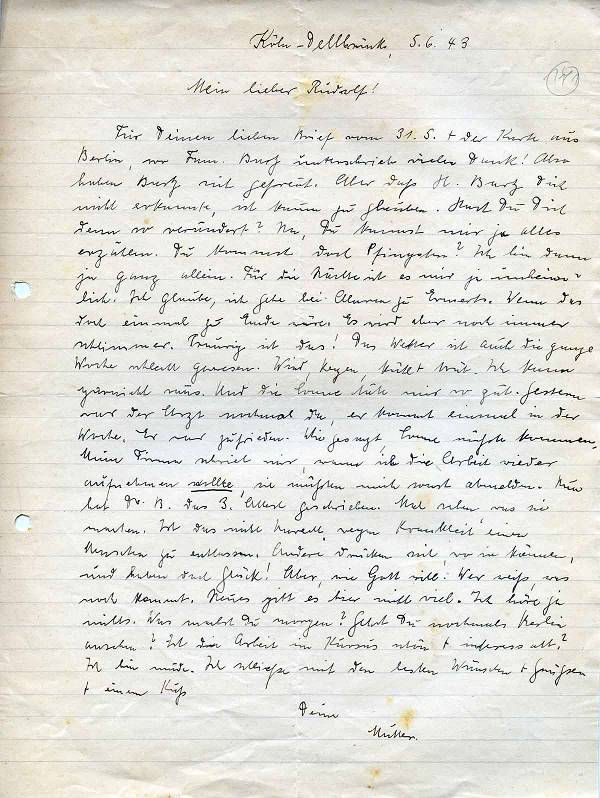 Köln-Dellbrück, 5.6.43
141
Mein lieber Rudolf!
Für Deinen lieben Brief vom 31.5. + der Karte aus
Berlin, wo Fam. Bartz unterschrieb vielen Dank! Also
haben Bartz sich gefreut. Aber daß H. Bartz Dich
nicht erkannte, ist kaum zu glauben. Hast Du Dich
denn so verändert? Na, Du kannst mir ja alles
erzählen. Du kommst doch Pfingsten? Ich bin dann
ja ganz allein. Für die Nächte ist es mir ja unheim-
lich. Ich glaube, ich gehe bei Alarm zu Ennerts. Wenn das
doch einmal zu Ende wäre. Es wird aber noch immer
schlimmer. Traurig ist das! Das Wetter ist auch die ganze
Woche schlecht gewesen. Wind, Regen, kühl + trüb. Ich kann
garnicht raus. Und die Sonne täte mir so gut. Gestern
war der Arzt nochmal da, er kommt einmal in der
Woche. Er war zufrieden. Wie gesagt, Sonne müßte kommen,
Meine Firma schrieb mir, wann ich die Arbeit wieder
aufnehmen wollte, sie müßten mich sonst abmelden. Nun
hat Dr. B. das 3. Attest geschrieben. Mal sehen was sie
machen. Ist das nicht wegen Krankheit einen
Menschen zu entlassen. Andere drücken sich, wo sie können,
und haben doch Glück! Aber, wie Gott will! Wer weiß was
noch kommt. Neues gibt es hier nicht viel. Ich höre ja
nichts. Was machst Du morgen? Gehst Du nochmals Berlin
ansehen? Ist die Arbeit im Kursus schön + interessant?
Ich bin müde. Ich schließe mit den besten Wünschen + Grüßen
+ einem Kuß
Deine
Mutter.